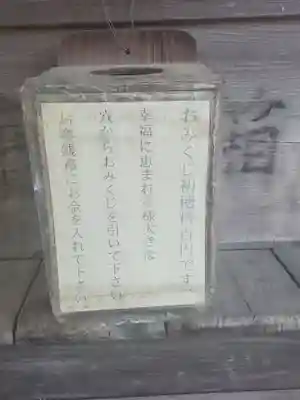 おみくじ初穂料百円です。
幸福に恵まれる様大きな
穴からおみくじを引いて下さい
お賽銭箱にお金を入れて下さい。